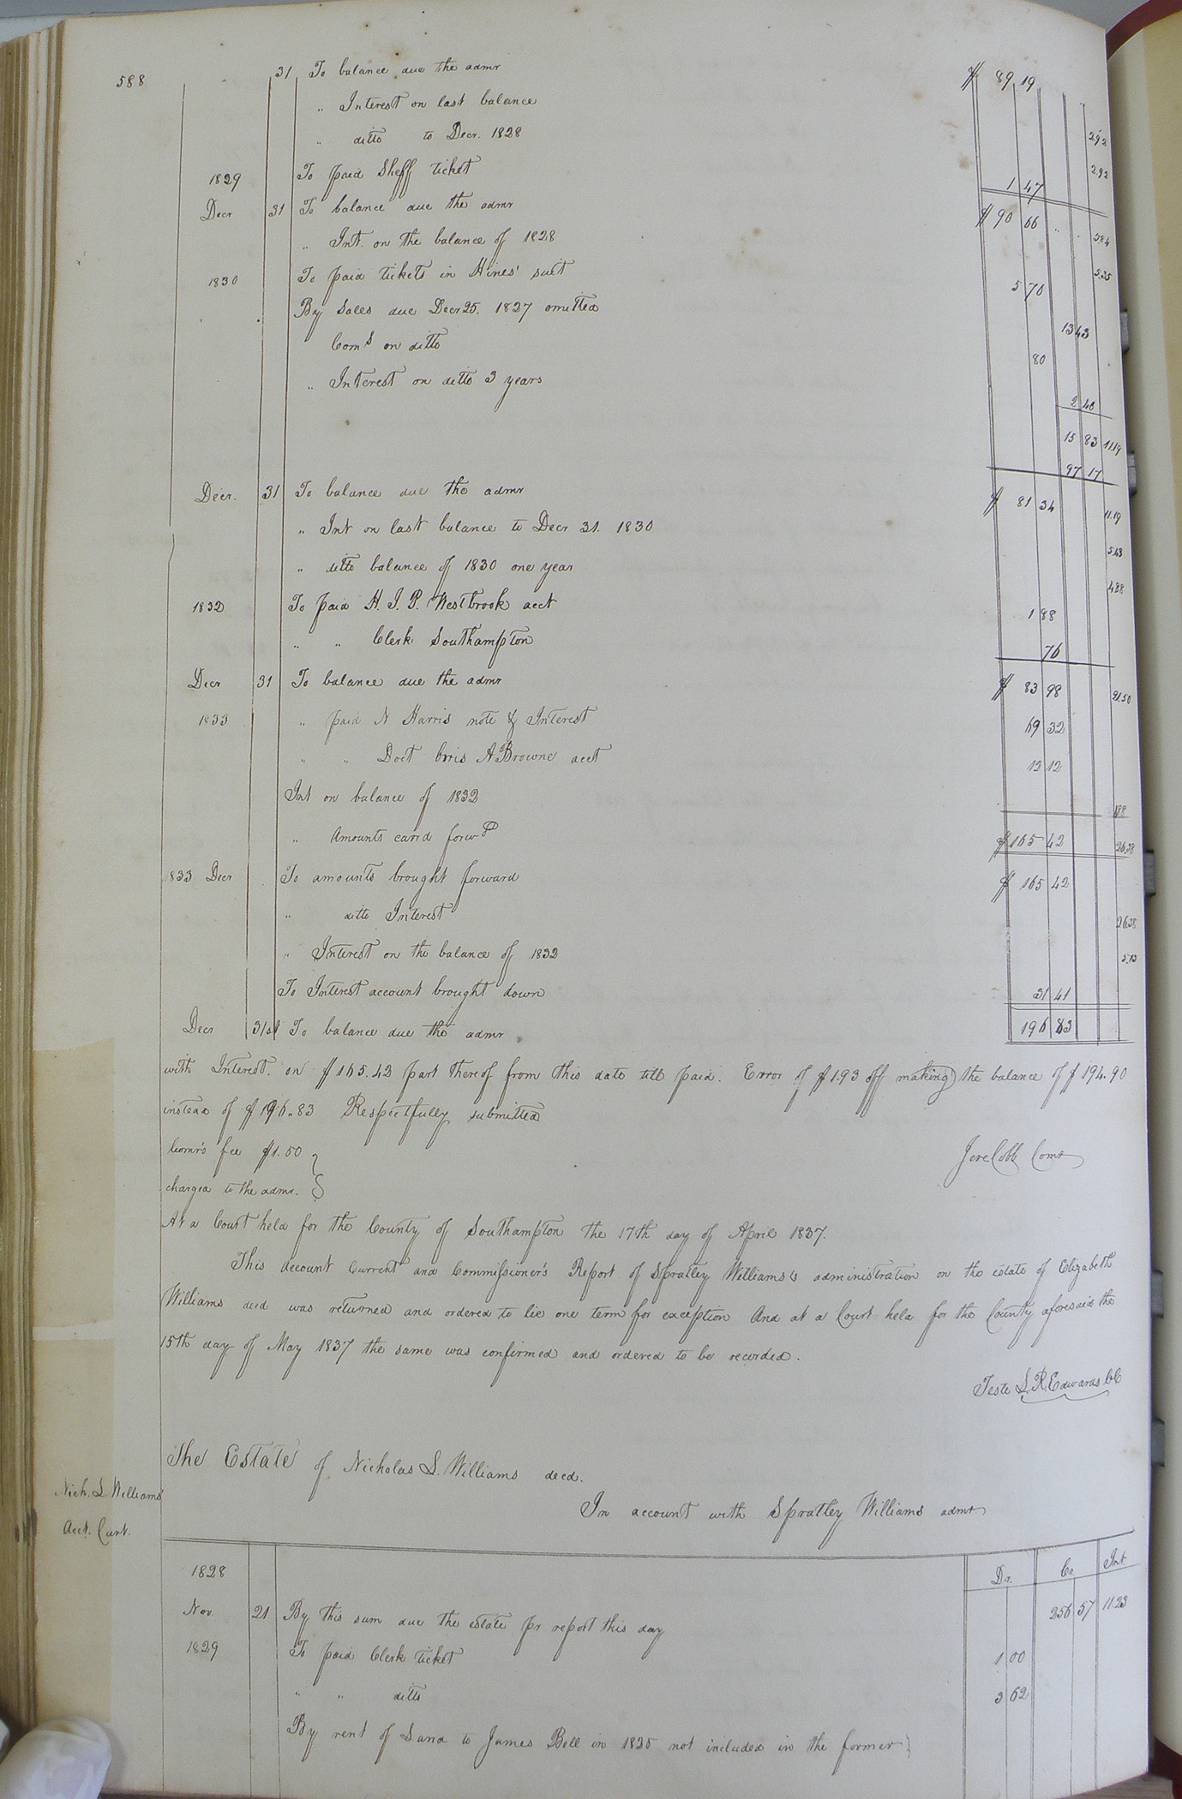 588
31 To balance due the admr $ 89 19
" Interest on last balance 2.92
" ditto to Decr. 1828 2.92
1829 To paid Sheff ticket 1 47
Decr 31 To balance due the admr $ 90 66 5.84
" Int. on the balance of 1828 5.35
1830 To paid tickets in Hines' suit 5 70
By Sales due Decr 25. 1827 omitted 13 43
Coms on ditto 80
" Interest on ditto 3 years 2 40
15 83 11.19
97 17
Decr. 31 To balance due the admr $ 81 34 11.19
" Int on last balance to Decr 31. 1830 5.43
" ditto balance of 1830 one year 4.88
1832 To paid H. J. P. Westbrook acct 1 88
" " Clerk Southampton 76
Decr 31 To balance due the admr $ 83 98 21.50
1833 " paid N Harris note & Interest 69 32
" " Doct A Browne acct 12 12
Int on balance of 1832
" Amounts carrd forwd $ 165 42 26.38
1833 Decr To amounts brought forward $ 165 42
" ditto Interest 26.38
" Interest on the balance of 1832 5.03
To Interest account brought down 31 41
Decr 31st To balance due the admr 196 83
with Interest. on $165.42 part thereof from this date till paid. Error of $1.93 off making the balance of $194.90
instead of $196.83 Respectfully submitted
Comr's fee $1.50
charged to the admr. Jere Cobb Comr
At a Court held for the County of Southampton the 17th day of April 1837.
This Account Current and Commissioner's Report of Spratley Williams's administration on the estate of Elizabeth
Williams decd was returned and ordered to lie one term for exception And at a Court held for the County aforesaid the
15th day of May 1837 the same was confirmed and ordered to be recorded.
Teste L. R. Edwards CC
The Estate of Nicholas L. Williams decd.
Nich. L Williams
Acct. Curt.
In account with Spratley Williams admr
1828 Dr. Cr. Int
Nov 21 By this sum due the estate pr report this day 256 57 11.23
1829 To paid Clerk ticket 1 00
" " ditto 3 62
By rent of Land to James Bell in 1825 not included in the former